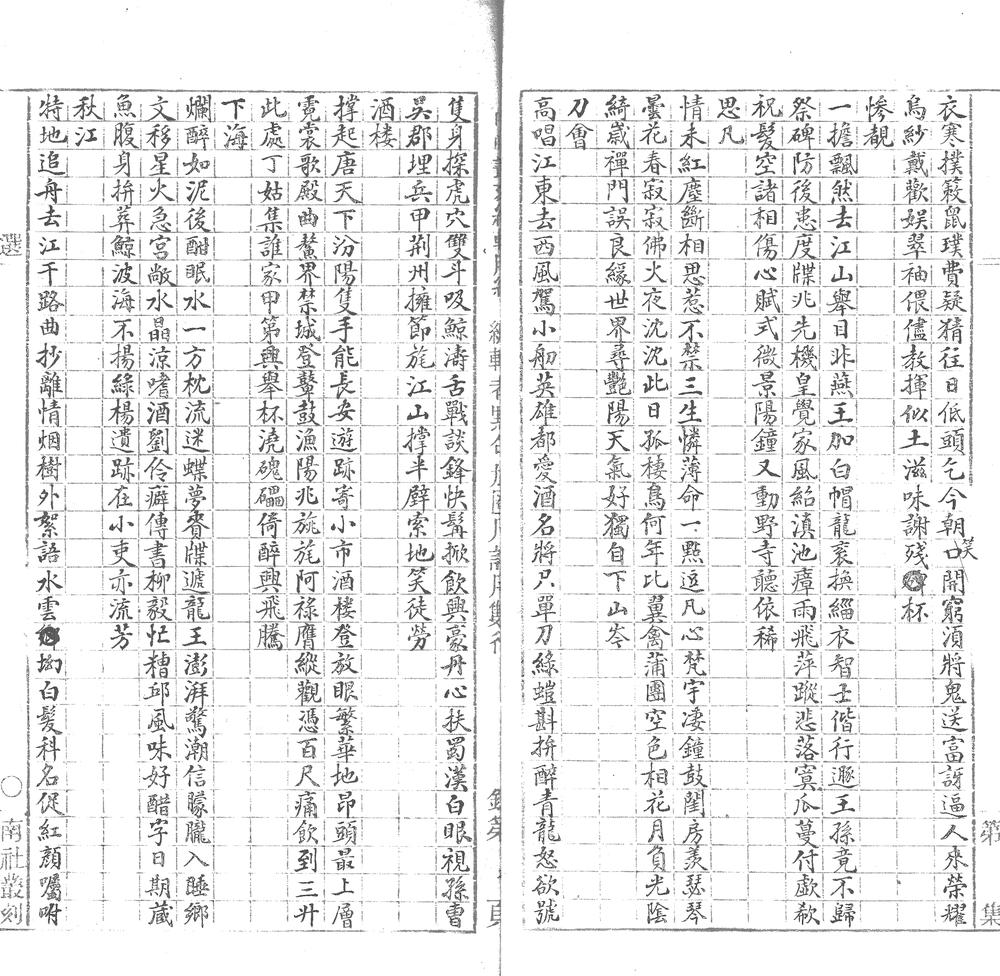 衣寒撲簌鼠璞費疑猜往日低頭乞今朝笑口開窮須將鬼送富訝逼人來榮耀
烏紗戴歡娱翠袖偎儘教揮似土滋味謝殘杯
慘覩
一擔飄然去江山舉目非燕王加白帽龍衮換緇衣智士偕行遯王孫竟不歸
祭碑防後患度牒兆先機皇覺家風紹滇池瘴雨飛萍蹤悲落寞瓜蔓付歔欷
祝髮空諸相傷心賦式微景陽鐘又動野寺聽依稀
思凡
情未紅塵斷相思惹不禁三生憐薄命一點逗凡心梵宇凄鐘鼓閨房羨瑟琴
曇花春寂寂佛火夜沈沈此日孤棲鳥何年比翼禽蒲團空色相花月負光陰
綺歲禪門誤良緣世界尋艷陽天氣好獨自下山岑
刀會
高唱江東去西風駕小船英雄都愛酒名將只單刀綠螘斟拚醉青龍怒欲號
隻身探虎穴雙斗吸鯨濤舌戰談鋒快髯掀飲興豪丹心扶蜀漢白眼視孫曹
吳郡埋兵甲荆州擁節旄江山撑半壁索地笑徒勞
酒楼
撑起唐天下汾陽隻手能長安遊跡寄小市酒樓登放眼繁華地昂頭最上層
霓裳歌殿曲鰲界禁城登鼙鼓漁陽兆旄旄阿祿膺縱觀憑百尺痛飲到三升
此處丁姑集誰家甲第興舉杯澆磈礧倚醉興飛騰
下海
爛醉如泥後酣眠水一方枕流迷蝶夢賚牒遞龍王澎湃驚潮信朦朧入睡鄉
文移星火急宮敞水晶涼嗜酒劉伶癖傳書柳毅忙糟邱風味好醋字日期蔵
魚腹身拚葬鯨波海不揚綠楊遺跡在小吏亦流芳
秋江
特地追舟去江干路曲抄離情烟樹外絮語水雲坳白髮科名促紅顏囑咐
第 集
選 〇南社叢刻